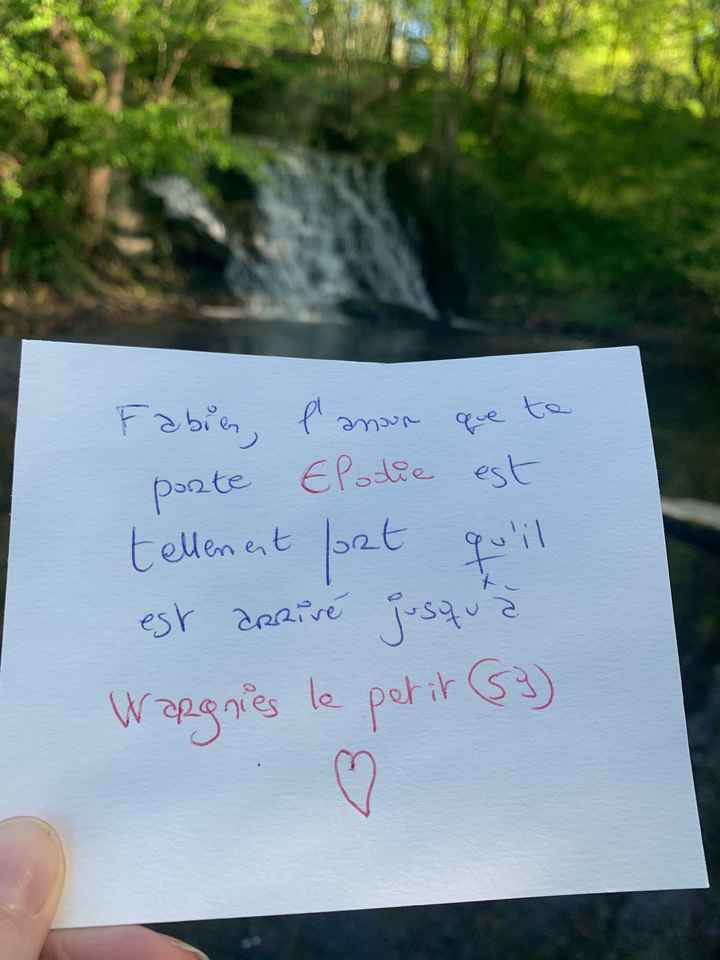 Fabien, l'amour que te
porte Elodie est
tellement fort qu'il
est arrivé jusqu'à
Wargnies le petit (59)